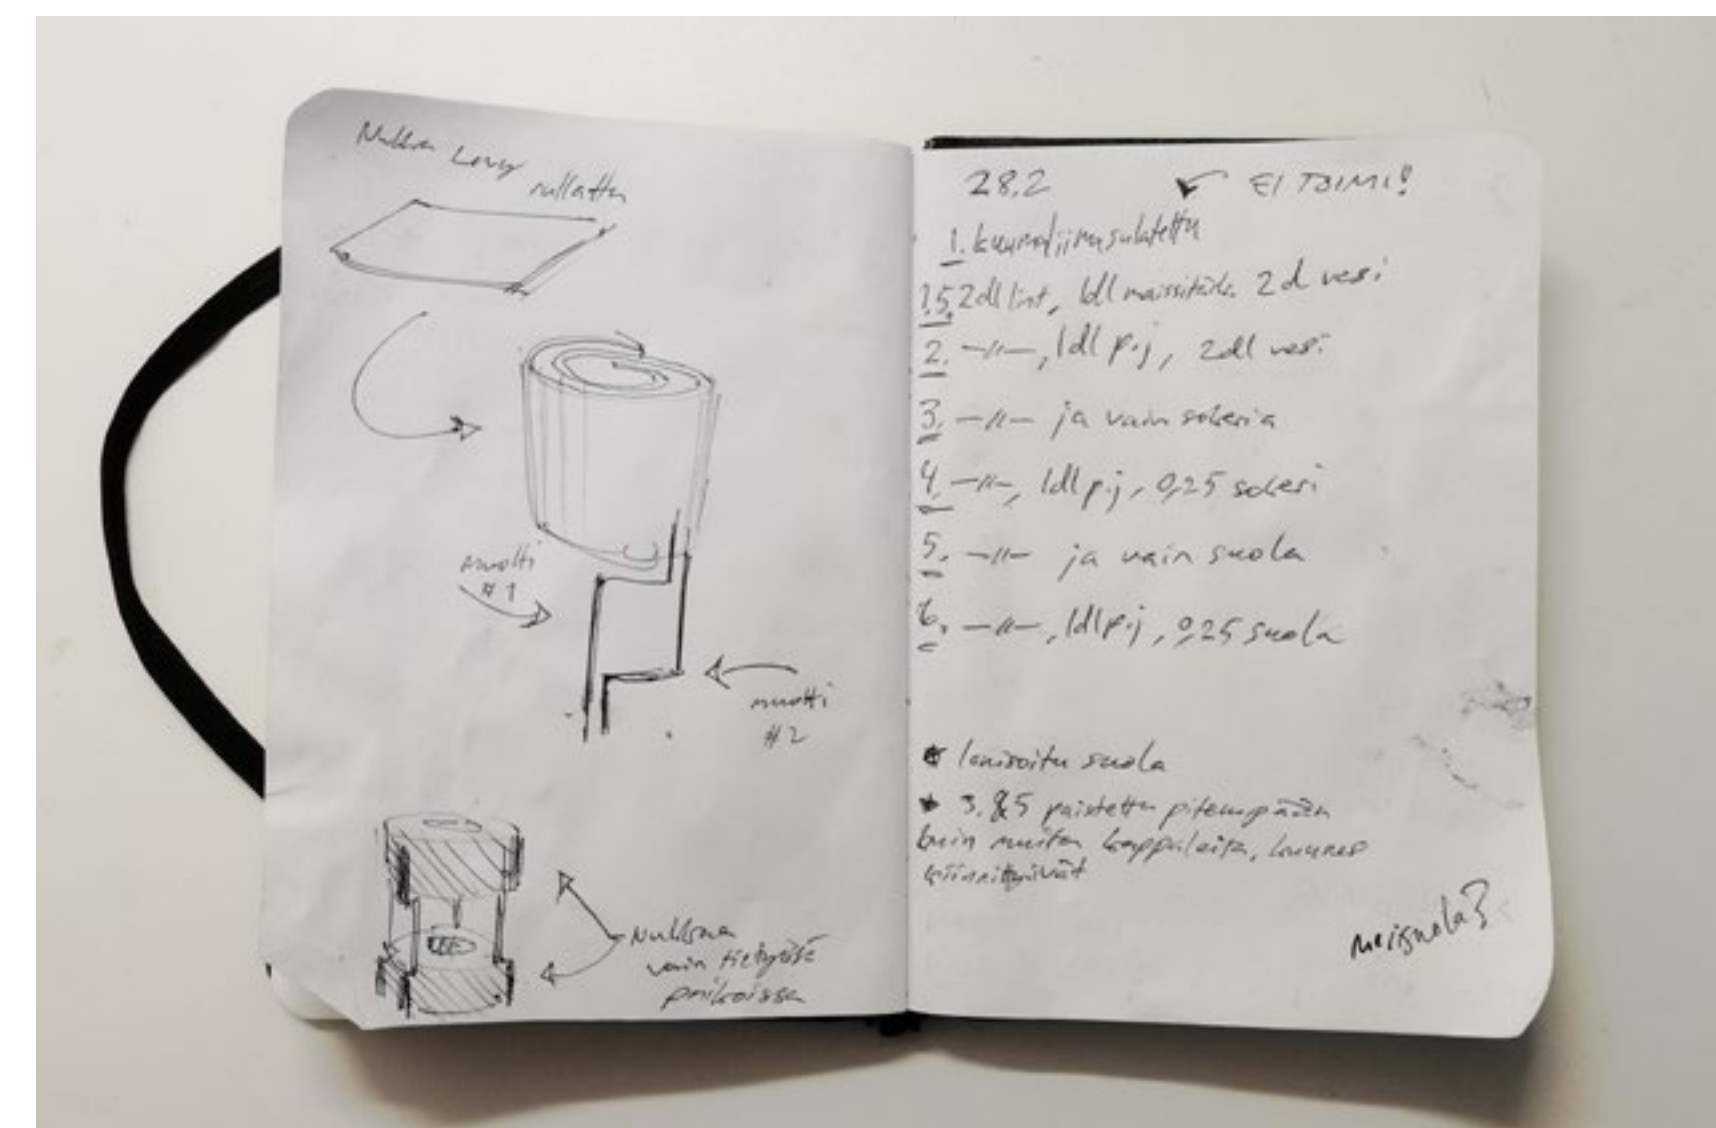 Nukka Levy
rullattu
muotti
#1
muotti
#2
Nukkaa
vain tietyissä
paikoissa
28.2 EI TOIMI!
1. kuumaliima sulatettu
1.5. 2dl lint, 1dl maissitärk. 2d vesi
2. -//-, 1dl p.j, 2dl vesi
3. -//- ja vain sokeria
4. -//-, 1dl p.j, 0,25 sokeri
5. -//- ja vain suola
6. -//-, 1dl p.j, 0,25 suola
suola
3. & 5 paistettu pitempään
kuin muita kappaleita, kunnes
kiinnittyivät
merisuola?